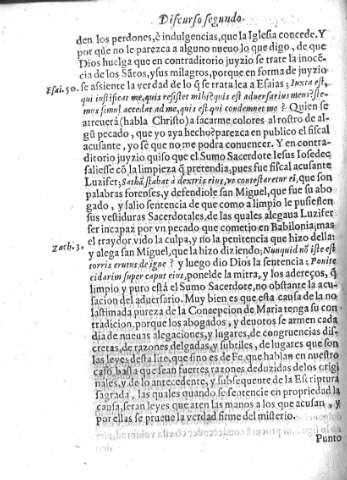 Discurso segundo.
den los perdones, è indulgencias, que la Iglesia concede. Y
por que no le parezca a alguno nueuo lo que digo, de que
Dios huelga que en contraditorio juyzio se trate la inocē-
cia de los Sãtos, y sus milagros, porque en forma de juyzio
Esai. 50. se assiente la verdad de lo q̃ se trata lea a Esaias; Iuxta est,
qui iustificat me, quis resistet mihi? quis est aduersarius meus? ste-
mus simul accedat ad me, quis est qui condemnet me? Quien se
atreuerà (habla Christo) a sacarme colores al rostro de al-
gũ pecado, que yo aya hecho? parezca en publico el fiscal
acusante, yo sé que no me podra conuencer. Y en contra-
ditorio juyzio quiso que el Sumo Sacerdote Iesus Iosedec
saliesse cõ la limpieza q̃ pretendia, pues fue fiscal acusante
Luzifer; Sathã stabat à dextris eius, vt contestaretur ei, que son
palabras forenses, y defendiole san Miguel, que fue su abo-
gado, y salio sentencia de que como a limpio le pusiessen
sus vestiduras Sacerdotales, de las quales alegaua Luzifer
ser incapaz por vn pecado que cometio en Babilonia; mas
el traydor vido la culpa, y no la penitencia que hizo della:
Zach. 3. y alega san Miguel, que la hizo diziendo; Nunquid nõ iste est
torris erutus de igne? y luego dio Dios la sentencia; Ponite
cidarim super caput eius, ponelde la mitra, y los adereços, q̃
limpio y puro està el Sumo Sacerdote, no obstante la acu-
sacion del aduersario. Muy bien es que esta causa de la no
lastimada pureza de la Concepcion de Maria tenga su con-
tradicion, porque los abogados, y deuotos se armen cada
dia de nueuas alegaciones, y lugares, de congruencias dis-
cretas, de razones delgadas, y subtiles, de lugares que son
las leyes desta lite, que sino es de Fe, que hablan en nuestro
caso, basta que sean fuertes razones deduzidas de los origi
nales, y de lo antecedente, y subsequente de la Escriptura
sagrada, las quales quando se sentencie en propriedad la
causa, seran leyes que aten las manos a los que acusan, y
por ellas se prueue la verdad firme del misterio.
Punto